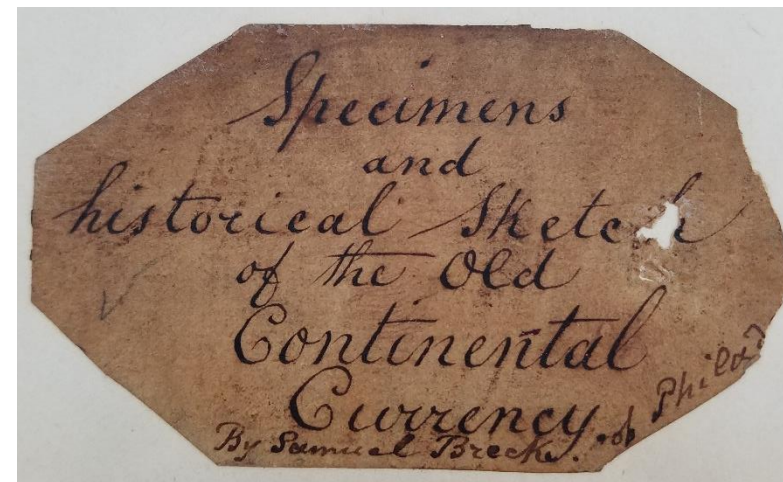 Specimens
and
historical Sketch
of the Old
Continental
Currency
By Samuel Breck. of Philad